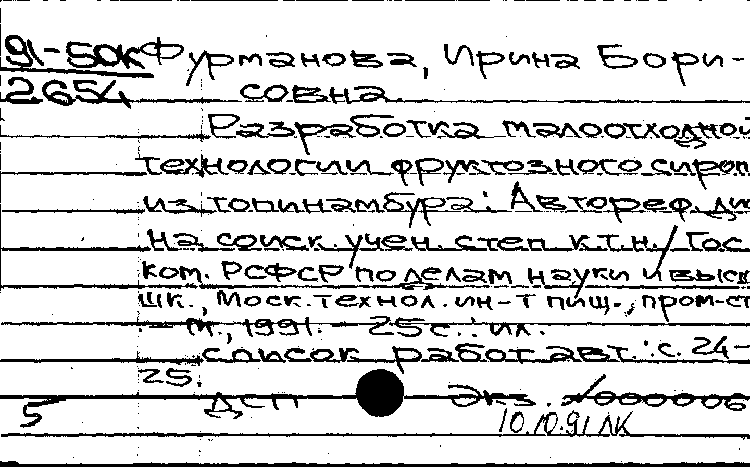 91-50к Фурманова, Ирина Бори-
2654 совна.
Разработка малоотходной
технологии фруктозного сироп
из топинамбура: Автореф. ди
на соиск. учен. степ. к.т.н. / Гос.
ком. РСФСР по делам науки и высш.
шк., Моск. технол. ин-т пищ. пром-ст
. – М., 1991. – 25 с. : ил.
Список работ авт.: с. 24-
25.
5 ДСП Экз. №000006
10.10.91 ЛК